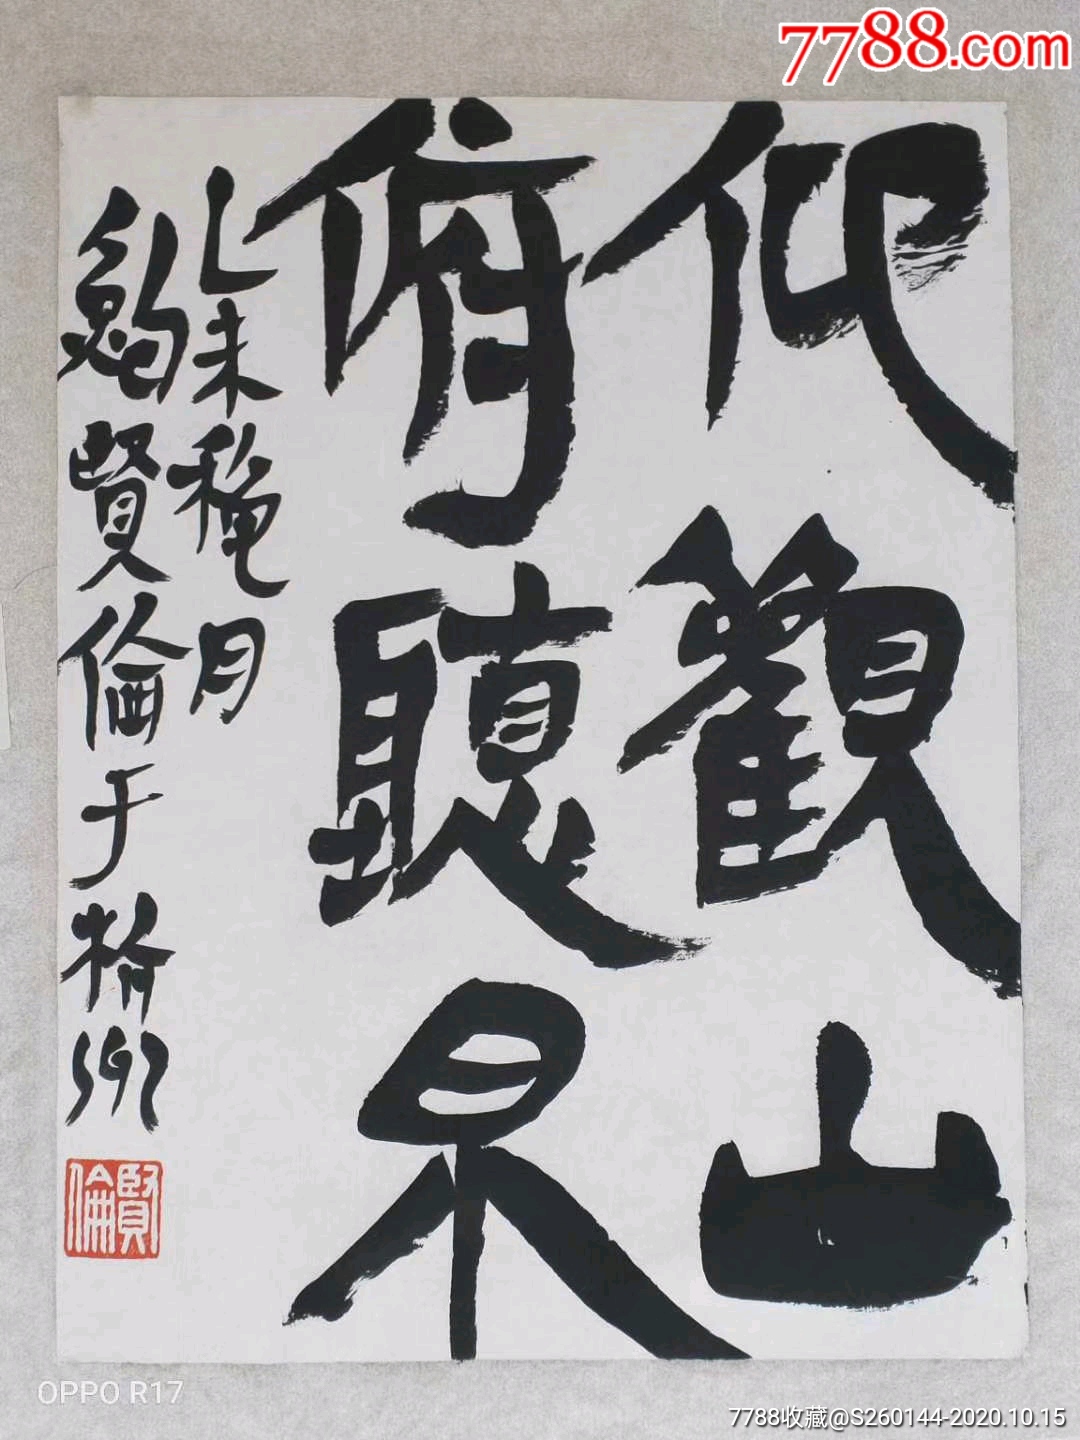 7788.com
仰觀山
俯聽泉
乙未穐月
賢倫于
賢倫
OPPO R17
7788收藏@S260144-2020.10.15